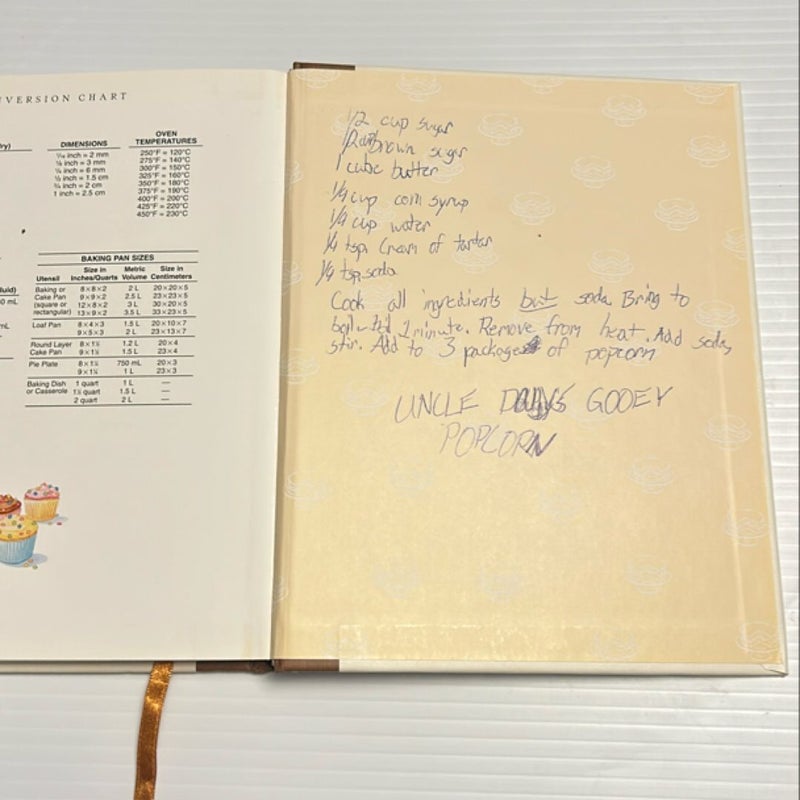 VERSION CHART
ry)
DIMENSIONS
1/16 inch = 2 mm
1/8 inch = 3 mm
1/4 inch = 6 mm
1/2 inch = 1.5 cm
3/4 inch = 2 cm
1 inch = 2.5 cm
OVEN
TEMPERATURES
250°F = 120°C
275°F = 140°C
300°F = 150°C
325°F = 160°C
350°F = 180°C
375°F = 190°C
400°F = 200°C
425°F = 220°C
450°F = 230°C
luid)
0 mL
mL
BAKING PAN SIZES
Utensil Size in Inches/Quarts Metric Volume Size in Centimeters
Baking or 8×8×2 2 L 20×20×5
Cake Pan 9×9×2 2.5 L 23×23×5
(square or 12×8×2 3 L 30×20×5
rectangular) 13×9×2 3.5 L 33×23×5
Loaf Pan 8×4×3 1.5 L 20×10×7
9×5×3 2 L 23×13×7
Round Layer 8×1½ 1.2 L 20×4
Cake Pan 9×1½ 1.5 L 23×4
Pie Plate 8×1¼ 750 mL 20×3
9×1¼ 1 L 23×3
Baking Dish 1 quart 1 L —
or Casserole 1½ quart 1.5 L —
2 quart 2 L —
1/2 cup sugar
Brown sugar
1 cube butter
1/4 cup corn syrup
1/4 cup water
1/4 tsp. Cream of tartar
1/4 tsp. soda
Cook all ingredients but soda. Bring to
boil 1 minute. Remove from heat. Add soda,
stir. Add to 3 packages of popcorn
UNCLE GOOEY
POPCORN